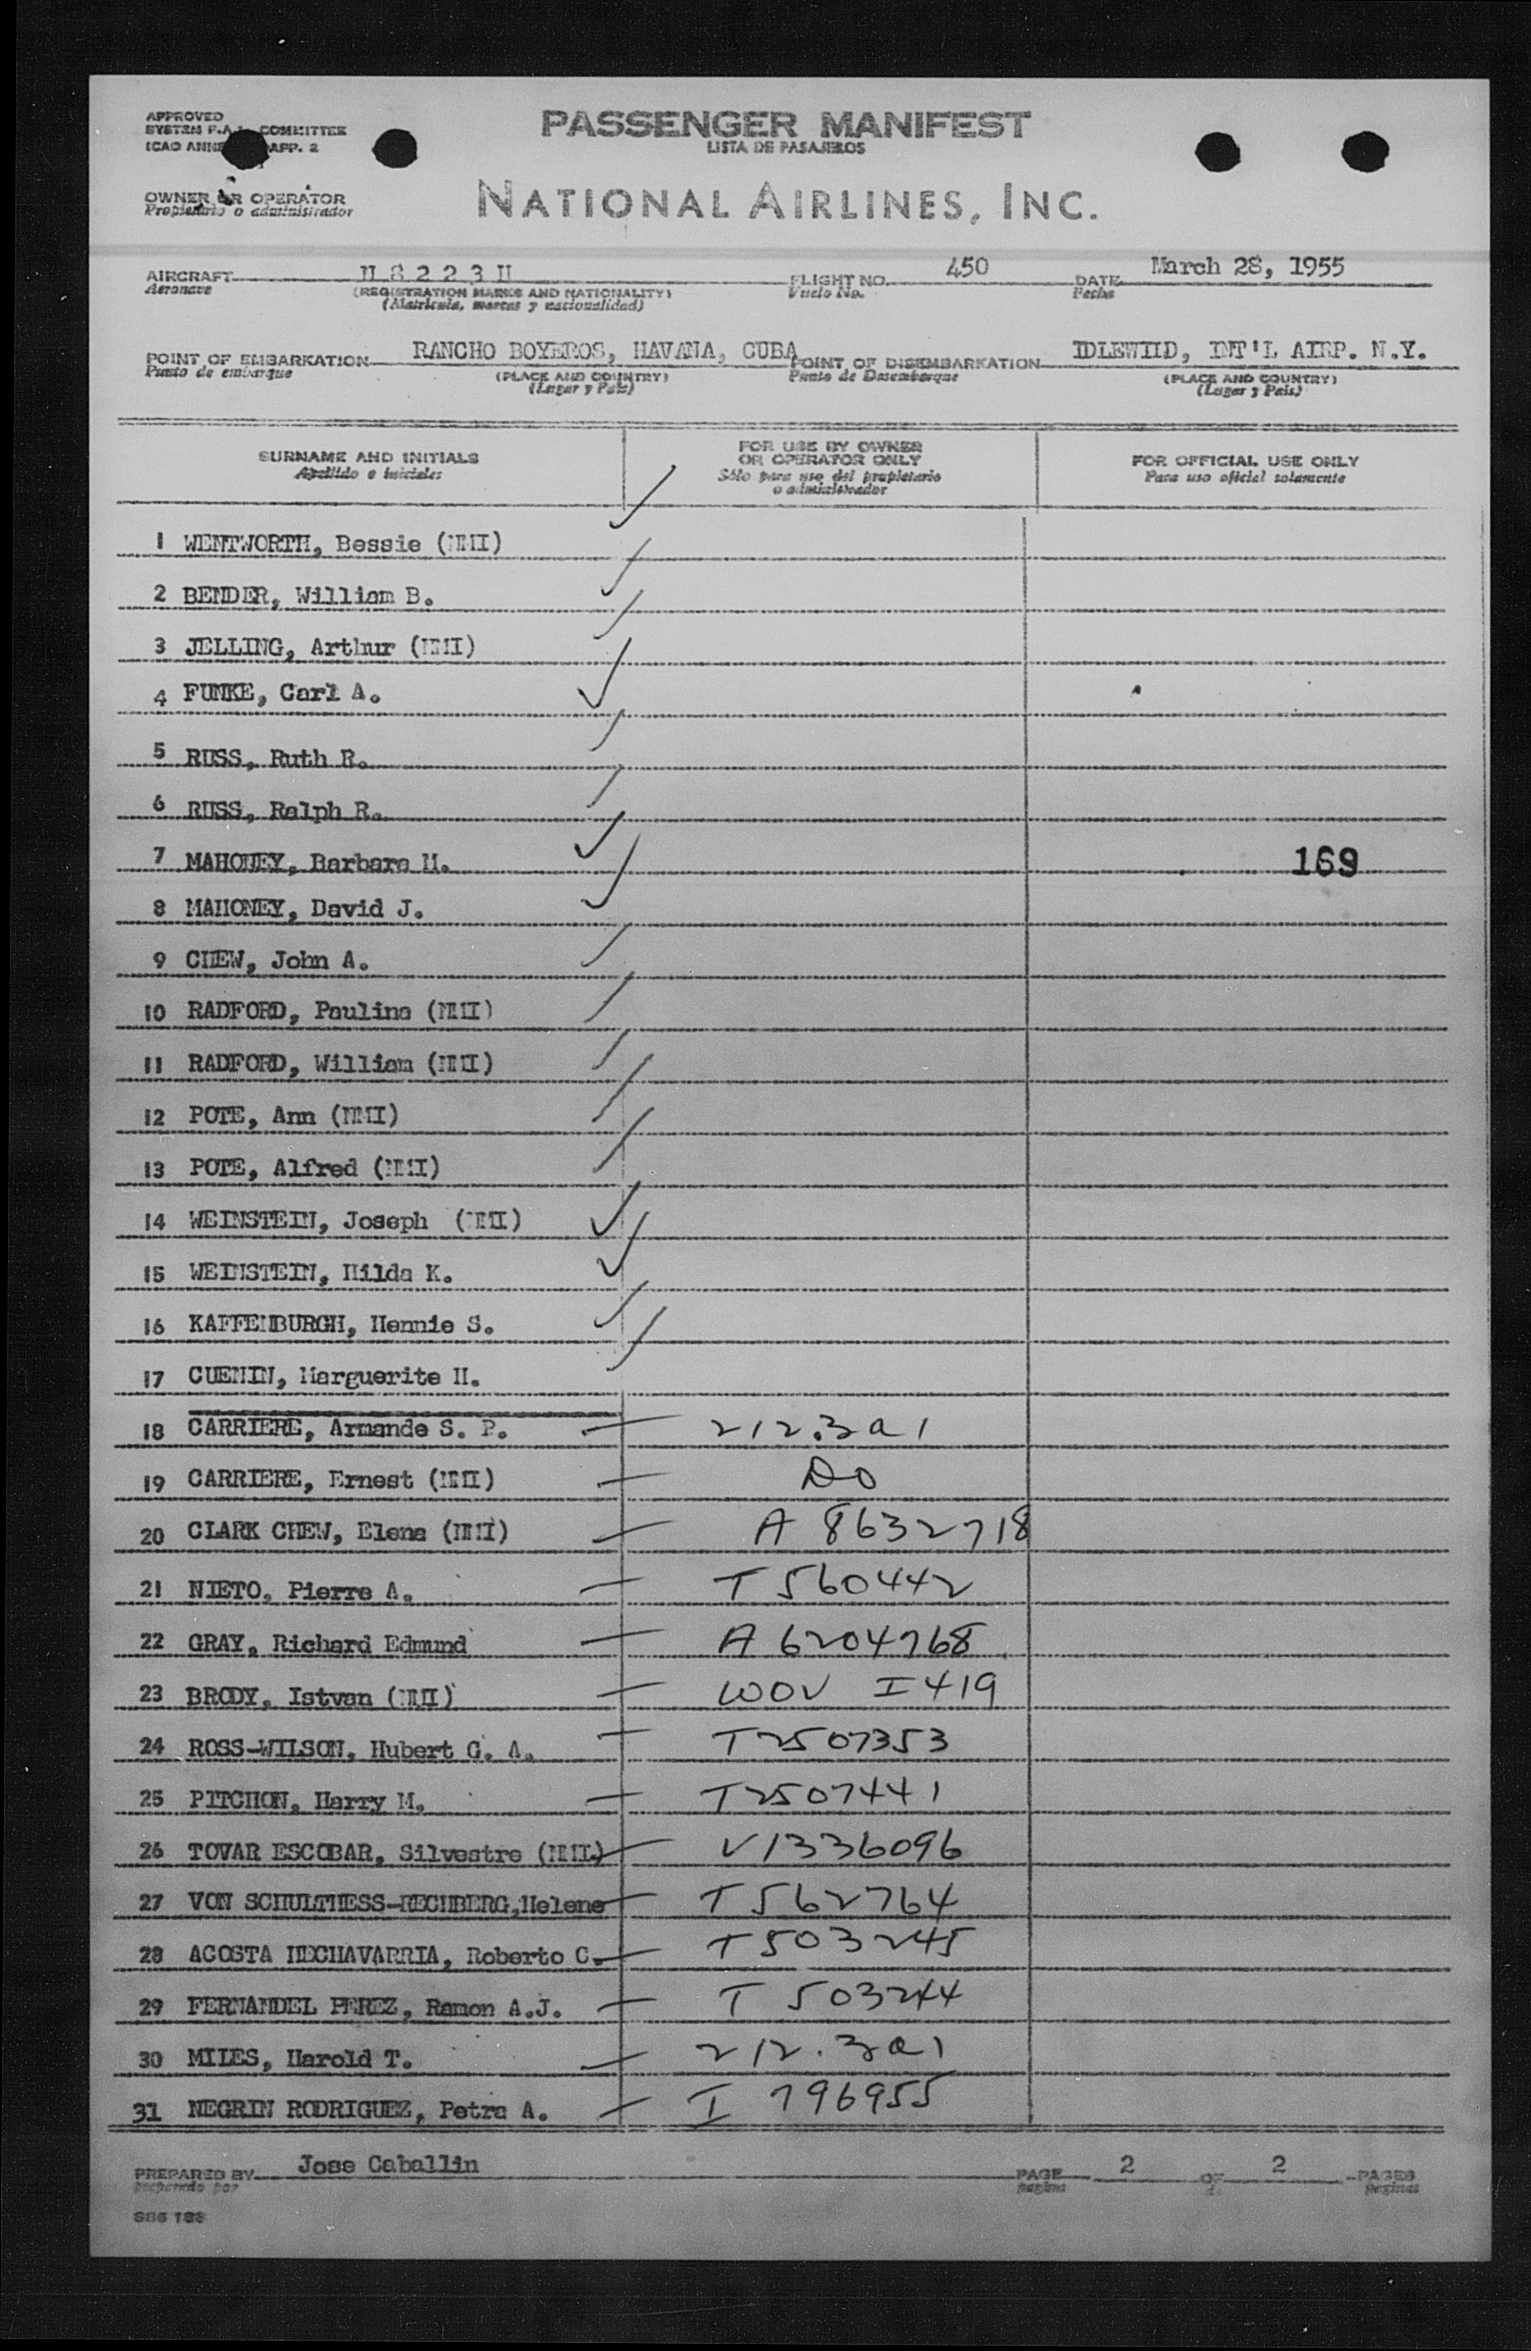 APPROVED
SYSTEM F.A.L. COMMITTEE
ICAO ANNEX APP. 2
PASSENGER MANIFEST
LISTA DE PASAJEROS
OWNER OR OPERATOR
Propietario o administrador
NATIONAL AIRLINES, INC.
AIRCRAFT N 8 2 2 3 H FLIGHT NO. 450 DATE March 28, 1955
Aeronave (REGISTRATION MARKS AND NATIONALITY) Vuelo No. Fecha
(Matricula, marcas y nacionalidad)
POINT OF EMBARKATION RANCHO BOYEROS, HAVANA, CUBA POINT OF DISEMBARKATION IDLEWILD, INT'L AIRP. N.Y.
Punto de embarque (PLACE AND COUNTRY) Punto de Desembarque (PLACE AND COUNTRY)
(Lugar y País) (Lugar y País)
SURNAME AND INITIALS FOR USE BY OWNER OR OPERATOR ONLY FOR OFFICIAL USE ONLY
Apellido e iniciales Sólo para uso del propietario o administrador Para uso oficial solamente
1 WENTWORTH, Bessie (NMI)
2 BENDER, William B.
3 JELLING, Arthur (NMI)
4 FUNKE, Carl A.
5 RUSS, Ruth R.
6 RUSS, Ralph R.
7 MAHONEY, Barbara M. 169
8 MAHONEY, David J.
9 CHEW, John A.
10 RADFORD, Pauline (NMI)
11 RADFORD, William (NMI)
12 POTE, Ann (NMI)
13 POTE, Alfred (NMI)
14 WEINSTEIN, Joseph (NMI)
15 WEINSTEIN, Hilda K.
16 KAFFENBURGH, Hennie S.
17 CUENIN, Marguerite H.
18 CARRIERE, Armande S. P. — 212.3a1
19 CARRIERE, Ernest (NMI) — Do
20 CLARK CHEW, Elena (NMI) — A 8632718
21 NIETO, Pierre A. — T 560442
22 GRAY, Richard Edmund — A 6204768
23 BRODY, Istvan (NMI) — WOV I 419
24 ROSS-WILSON, Hubert G. A. — T2507353
25 PITCHON, Harry M. — T2507441
26 TOVAR ESCOBAR, Silvestre (NMI) — V1336096
27 VON SCHULTHESS-RECHBERG, Helene — T 562764
28 ACOSTA HECHAVARRIA, Roberto C. — T 503245
29 FERNANDEL PEREZ, Ramon A.J. — T 503244
30 MILES, Harold T. — 212.3a1
31 NEGRIN RODRIGUEZ, Petra A. — I 796955
PREPARED BY Jose Caballin PAGE 2 OF 2 PAGES
preparado por pagina de paginas